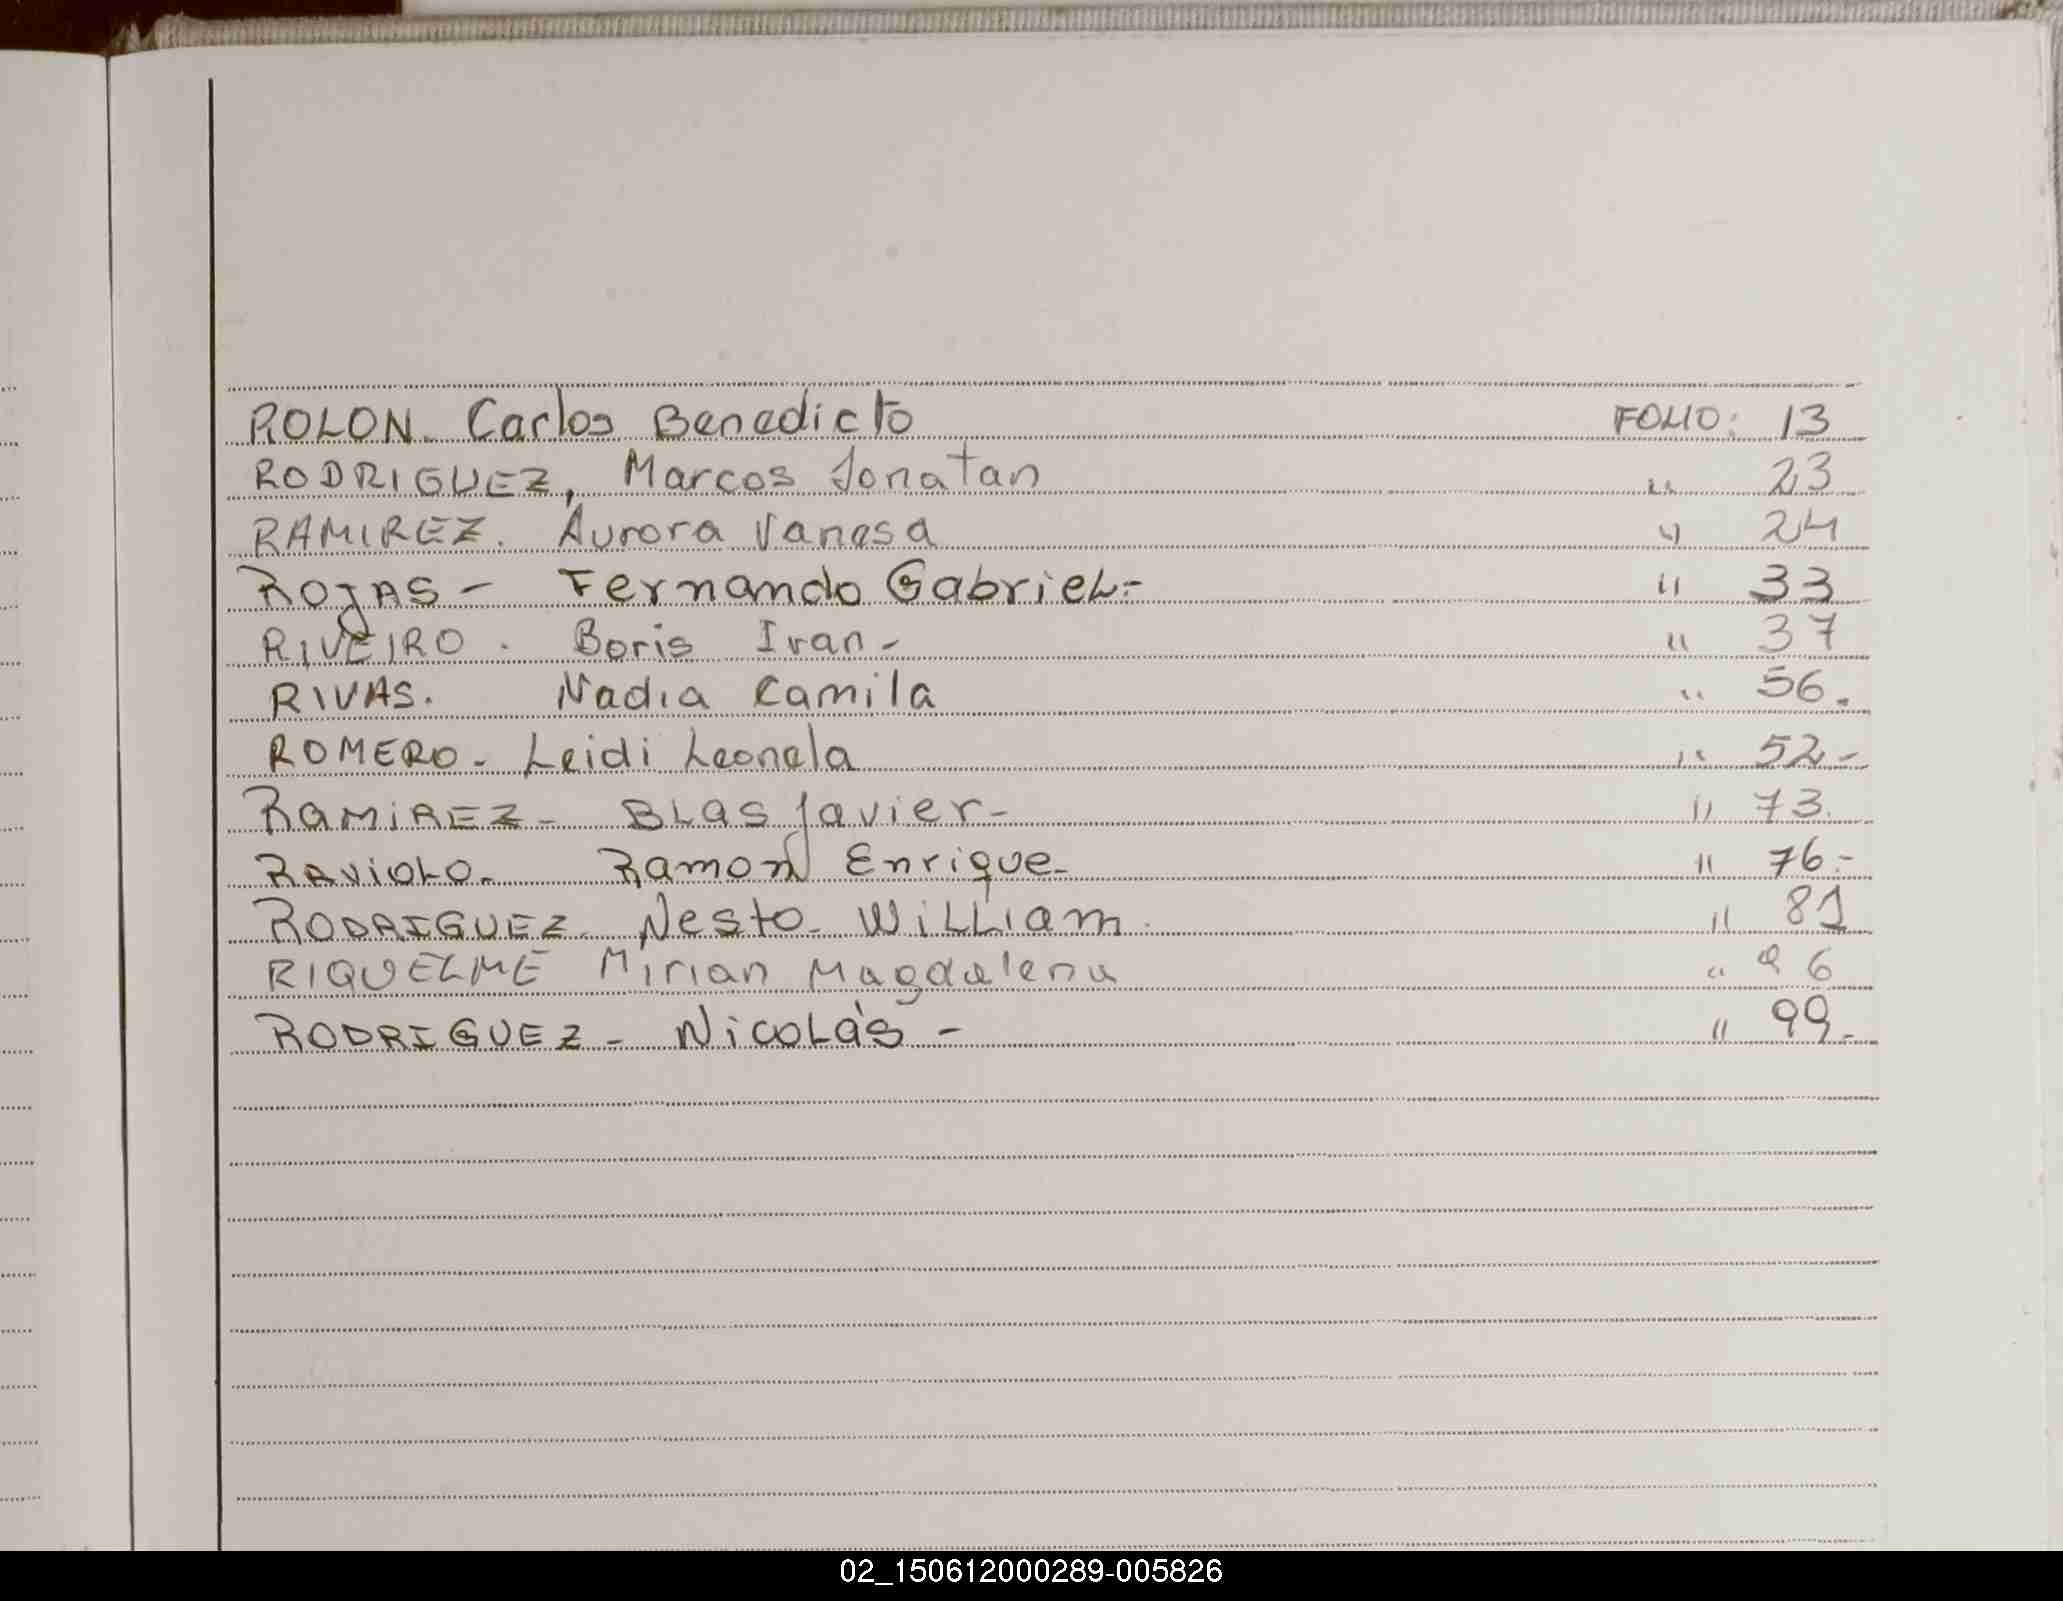 ROLON. Carlos Benedicto FOLIO: 13
RODRIGUEZ, Marcos Jonatan " 23
RAMIREZ. Aurora Vanesa " 24
ROJAS - Fernando Gabriel- " 33
RIVEIRO . Boris Ivan - " 37
RIVAS. Nadia Camila " 56.
ROMERO - Leidi Leonela " 52-
RAMIREZ - BLas Javier - " 73.
RAVIOLO. Ramon Enrique- " 76.-
RODRIGUEZ. Nesto- WiLLiam. " 81
RIQUELME Mirian Magdalena " 96
RODRIGUEZ - NicoLás - " 99.-
02_150612000289-005826